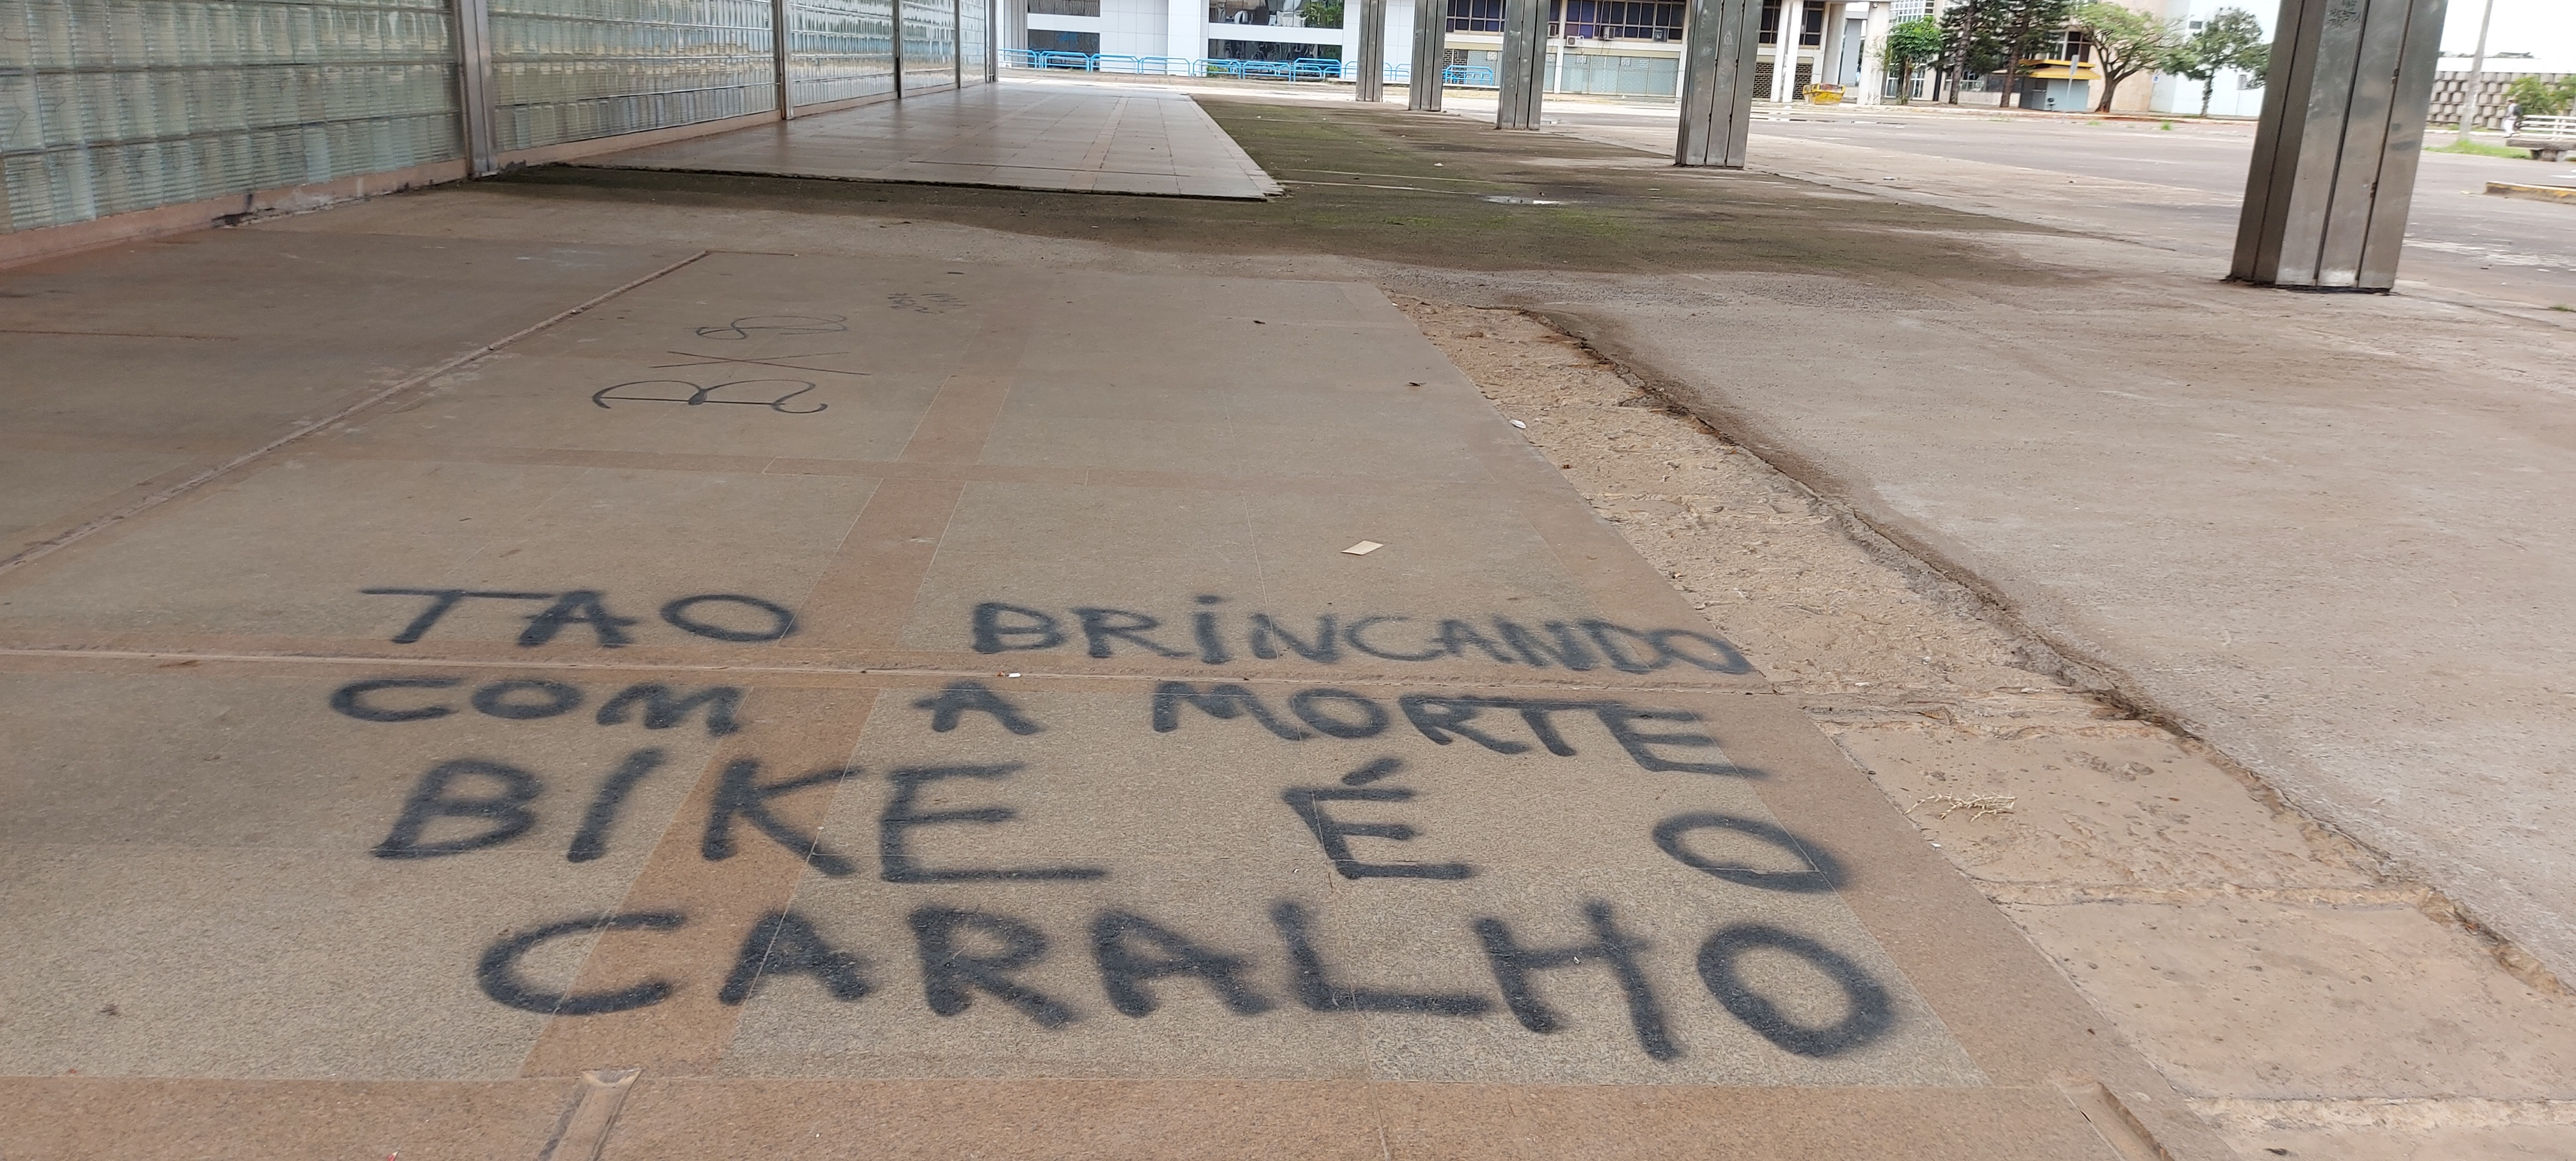 TAO BRiNCANDO
COM A MORTE
BIKE É O
CARALHO